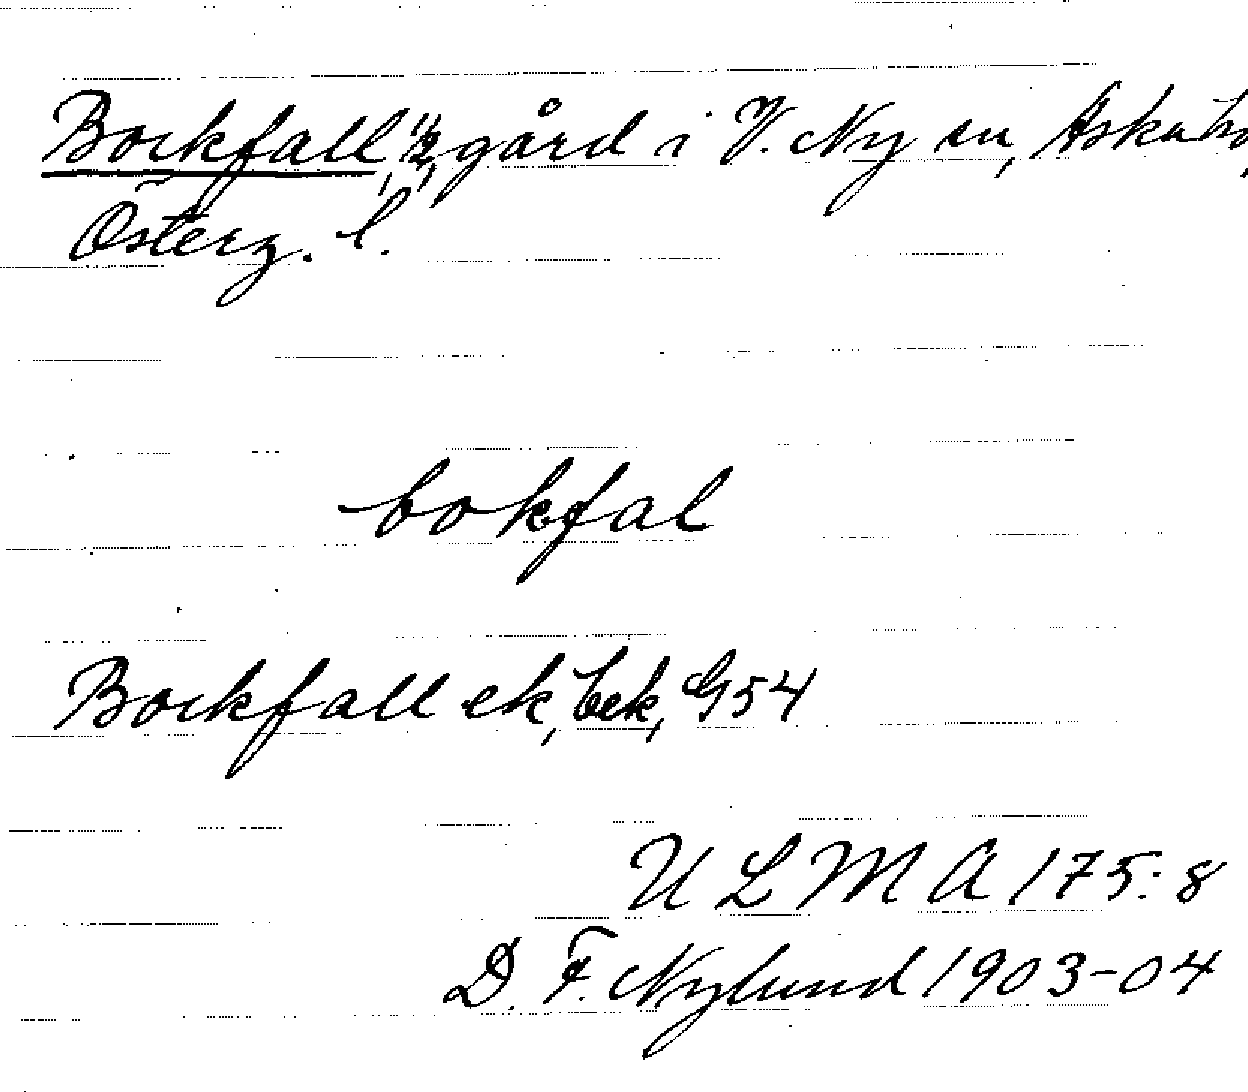 Bockfall, 1/2, gård i V. Ny sn, Aska hd,
Österg. l.
bokfal
Bockfall ek, bek, G54
ULMA 175:8
D. F. Nylund 1903-04